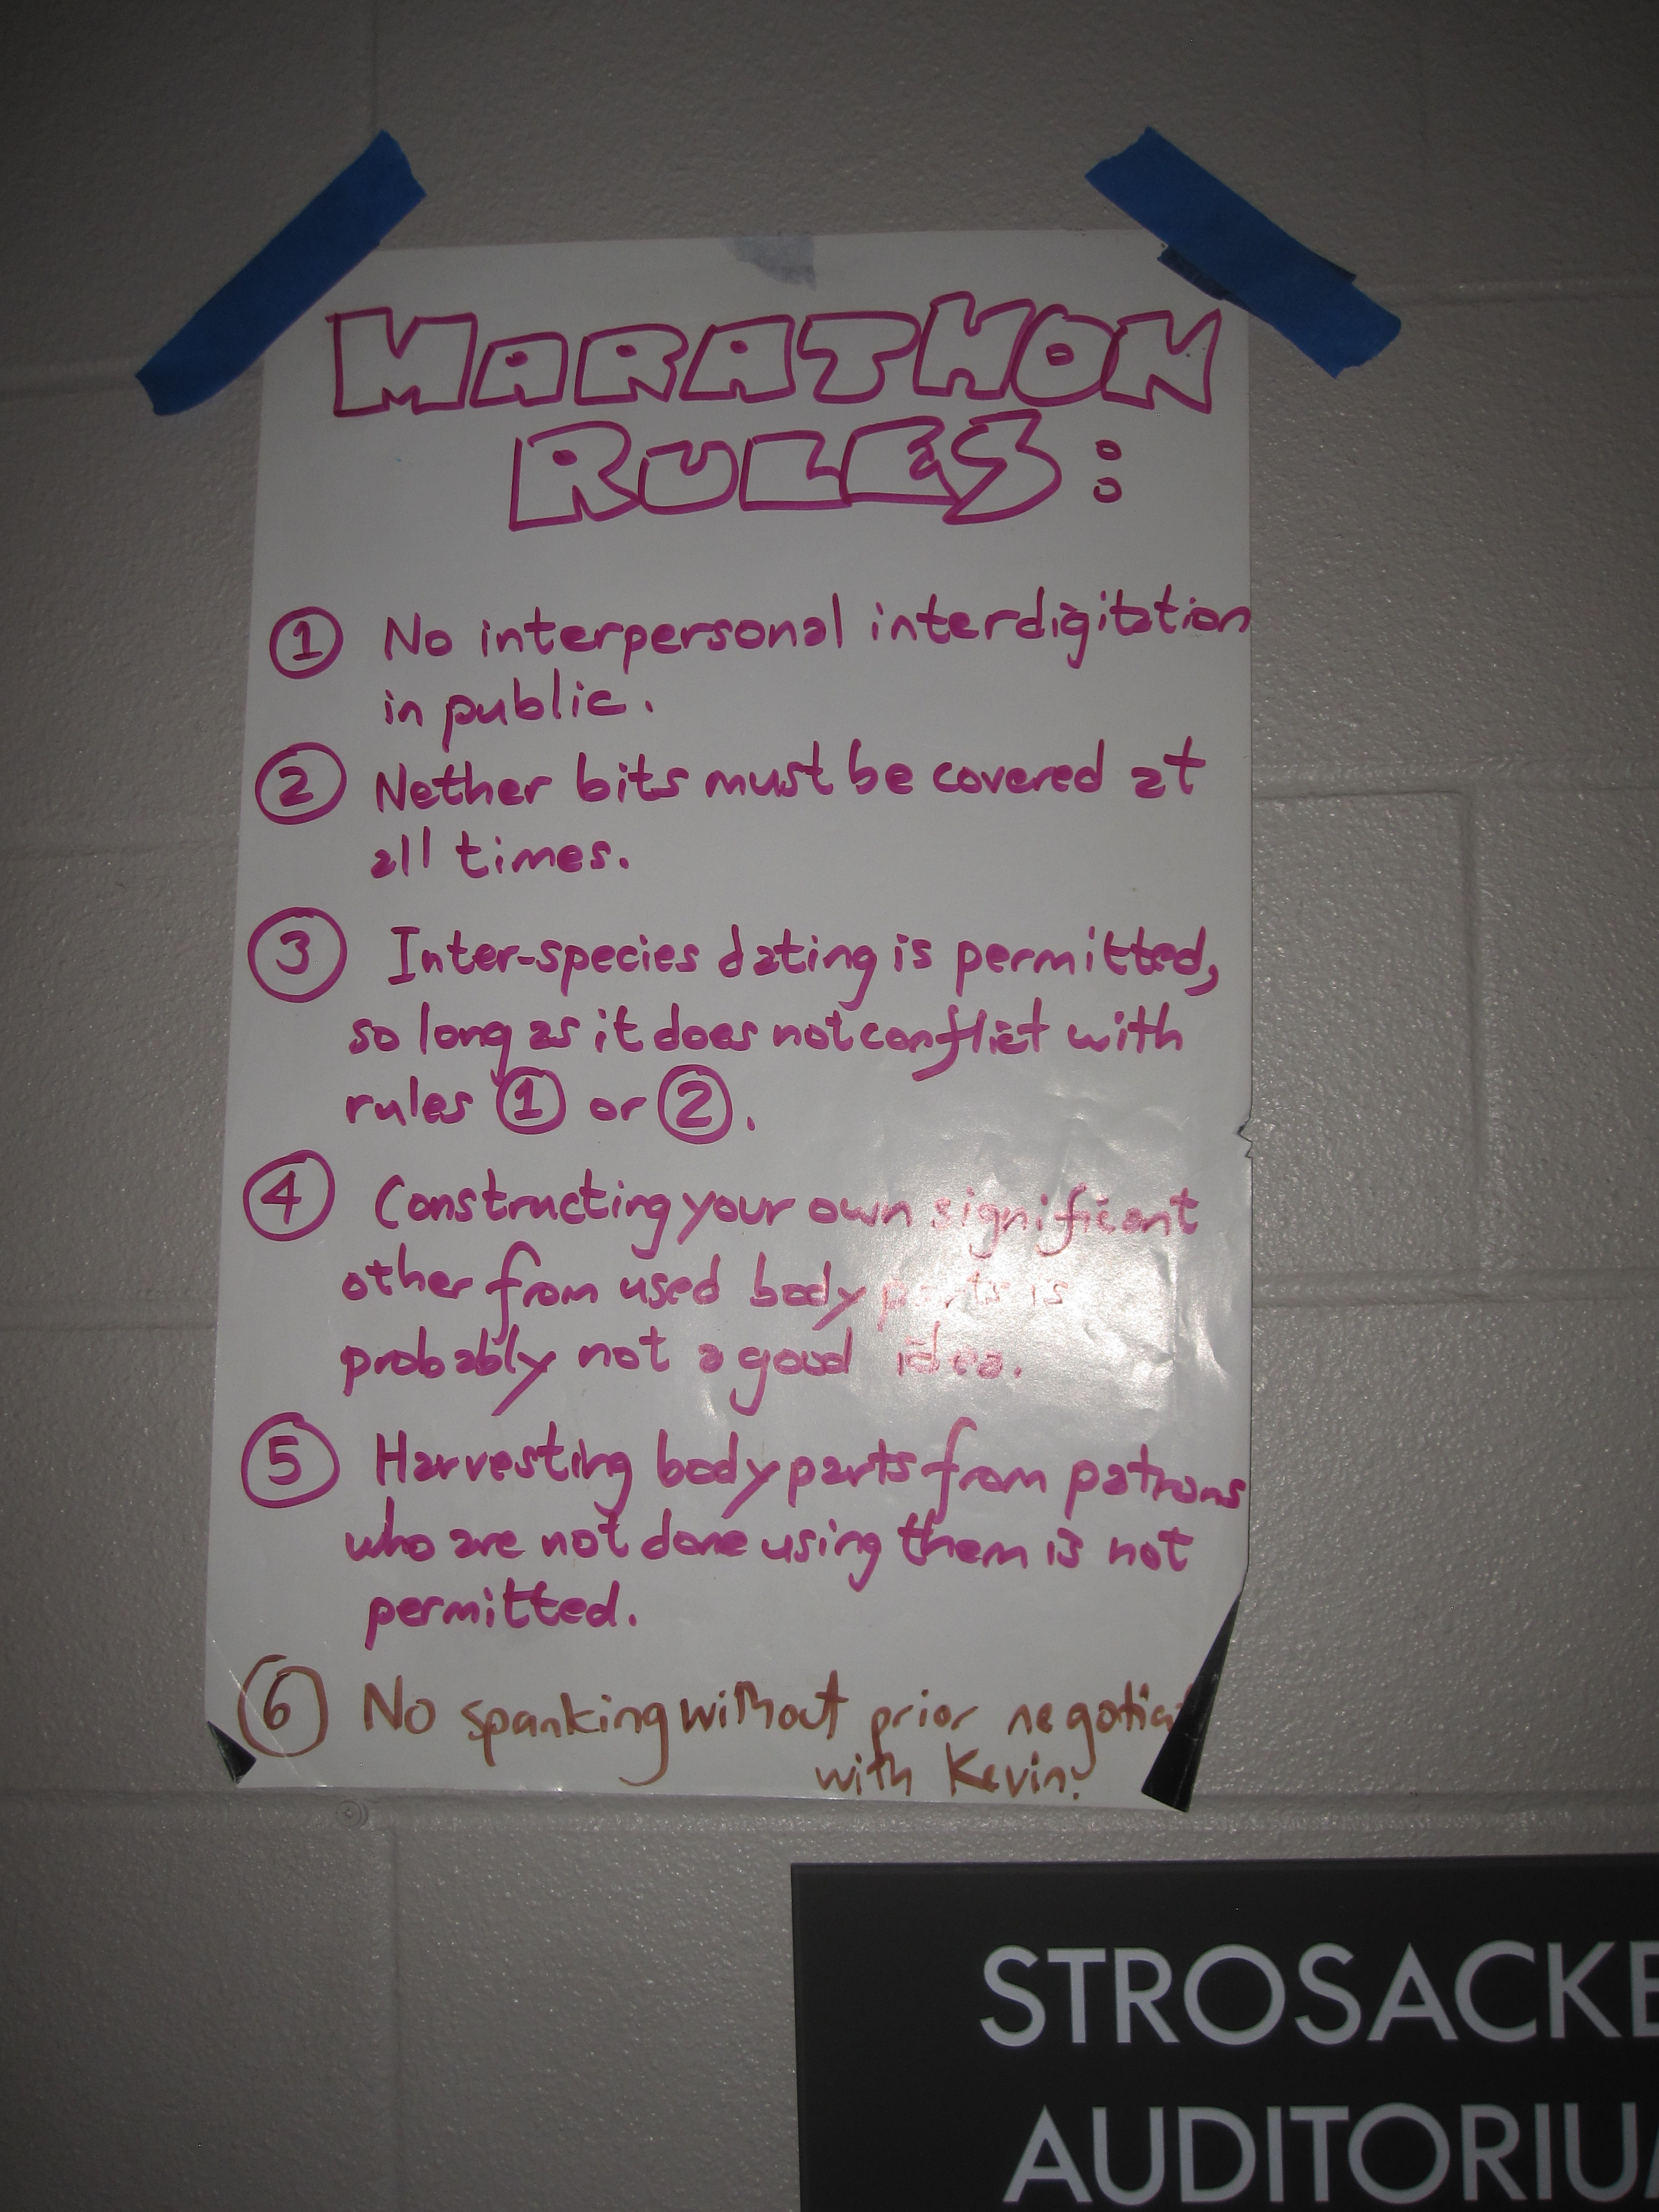 MARATHON
RULES:
① No interpersonal interdigitation
in public.
② Nether bits must be covered at
all times.
③ Inter-species dating is permitted,
so long as it does not conflict with
rules ① or ②.
④ Constructing your own significant
other from used body parts is
probably not a good idea.
⑤ Harvesting body parts from patrons
who are not done using them is not
permitted.
⑥ No spanking without prior negotiat
with Kevin!
STROSACKE
AUDITORIU